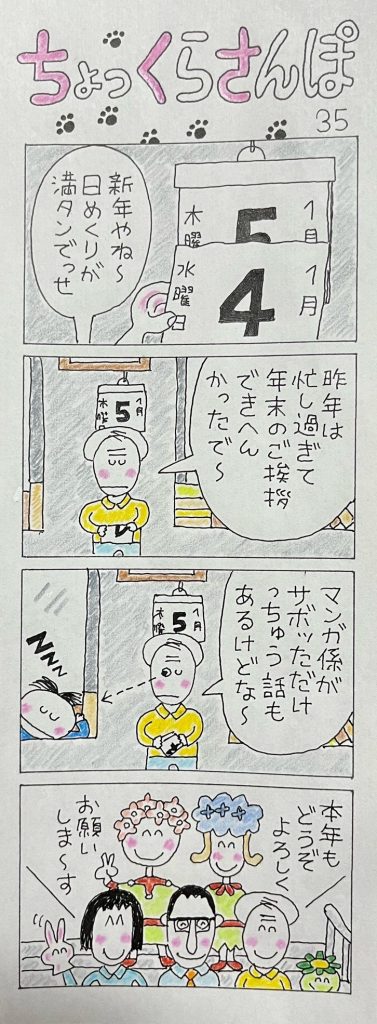 ちょっくらさんぽ
35
新年やね〜
日めくりが
満タンでっせ
1月
5
木曜
1月
4
水曜日
昨年は
忙し過ぎて
年末のご挨拶
できへん
かったで〜
1月
5
木曜
マンガ係が
サボッただけ
っちゅう話も
あるけどな〜
1月
5
木曜
ZZZZ
本年も
どうぞ
よろしく
お願い
しま〜す